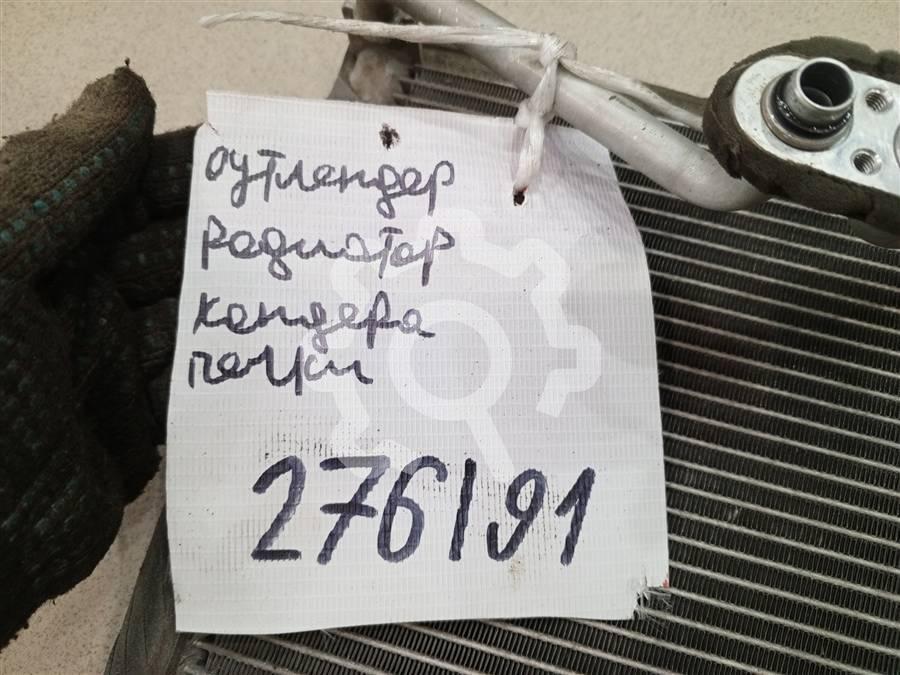 оутлендер
Радиатор
кондера
печки
276191